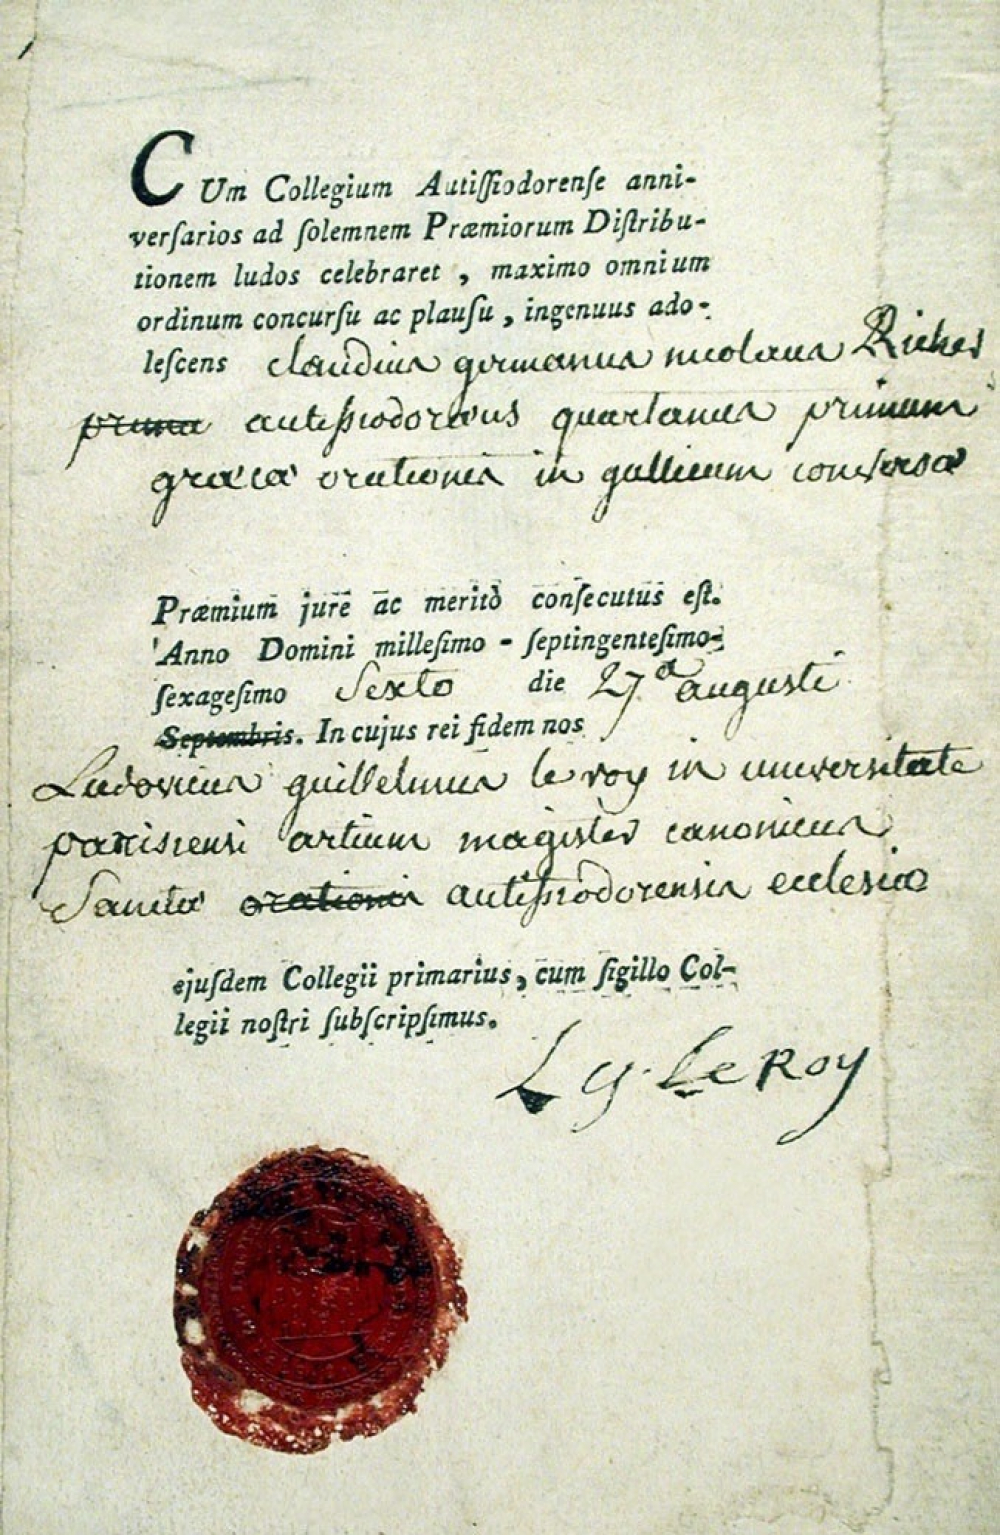 CUm Collegium Autiſſiodorenſe anni-
verſarios ad ſolemnem Præmiorum Diſtribu-
tionem ludos celebraret, maximo omnium
ordinum concurſu ac plauſu, ingenuus ado-
leſcens claudius germanus nicolaus Riches
prima autissiodoræus quartanus primum
græcæ orationis in gallicum conversæ
Præmium jure ac meritò conſecutus eſt.
Anno Domini milleſimo-ſeptingenteſimo-
ſexageſimo Sexto die 27a augusti
Septembris. In cujus rei fidem nos
Ludovicus guillelmus le roy in universitate
parisiensi artium magister canonicus
Sanctæ orationis autissiodorensis ecclesiæ
ejuſdem Collegii primarius, cum ſigillo Col-
legii noſtri ſubſcripſimus.
L g. Le Roy